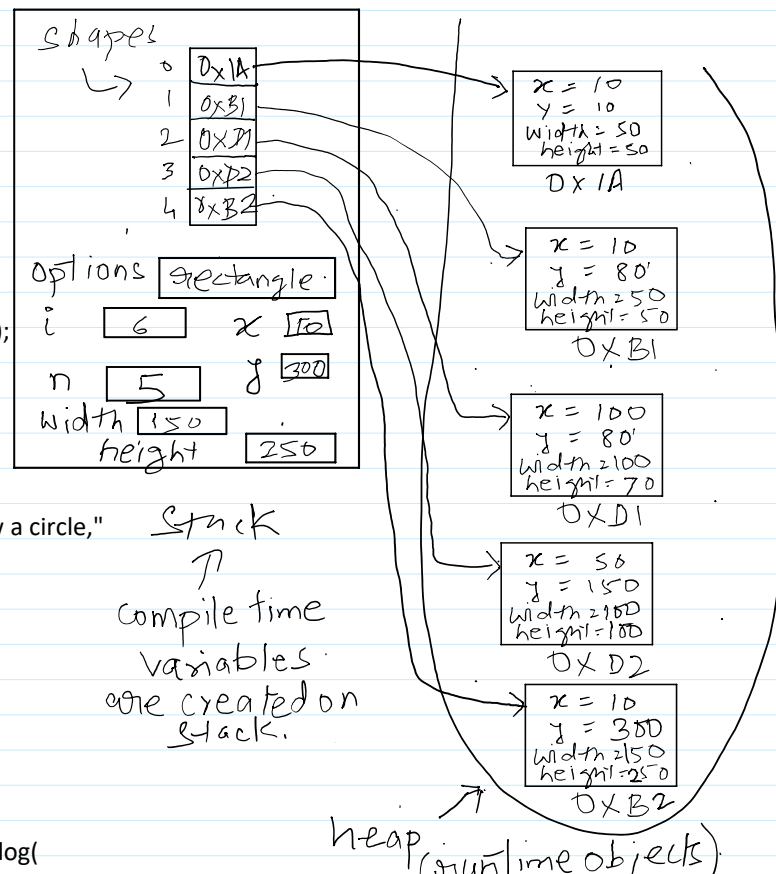 shapes
0 0x1A
1 0xB1
2 0xD1
3 0xD2
4 0xB2
options rectangle
i 6 x 10
);
n 5 y 300
width 150
height 250
y a circle,"
Stack
compile time
variables
are created on
stack.
log(
x = 10
y = 10
width = 50
height = 50
0x1A
x = 10
y = 80
width = 50
height = 50
0xB1
x = 100
y = 80
width = 100
height = 70
0xD1
x = 50
y = 150
width = 100
height = 100
0xD2
x = 10
y = 300
width = 150
height = 250
0xB2
heap (runtime objects)